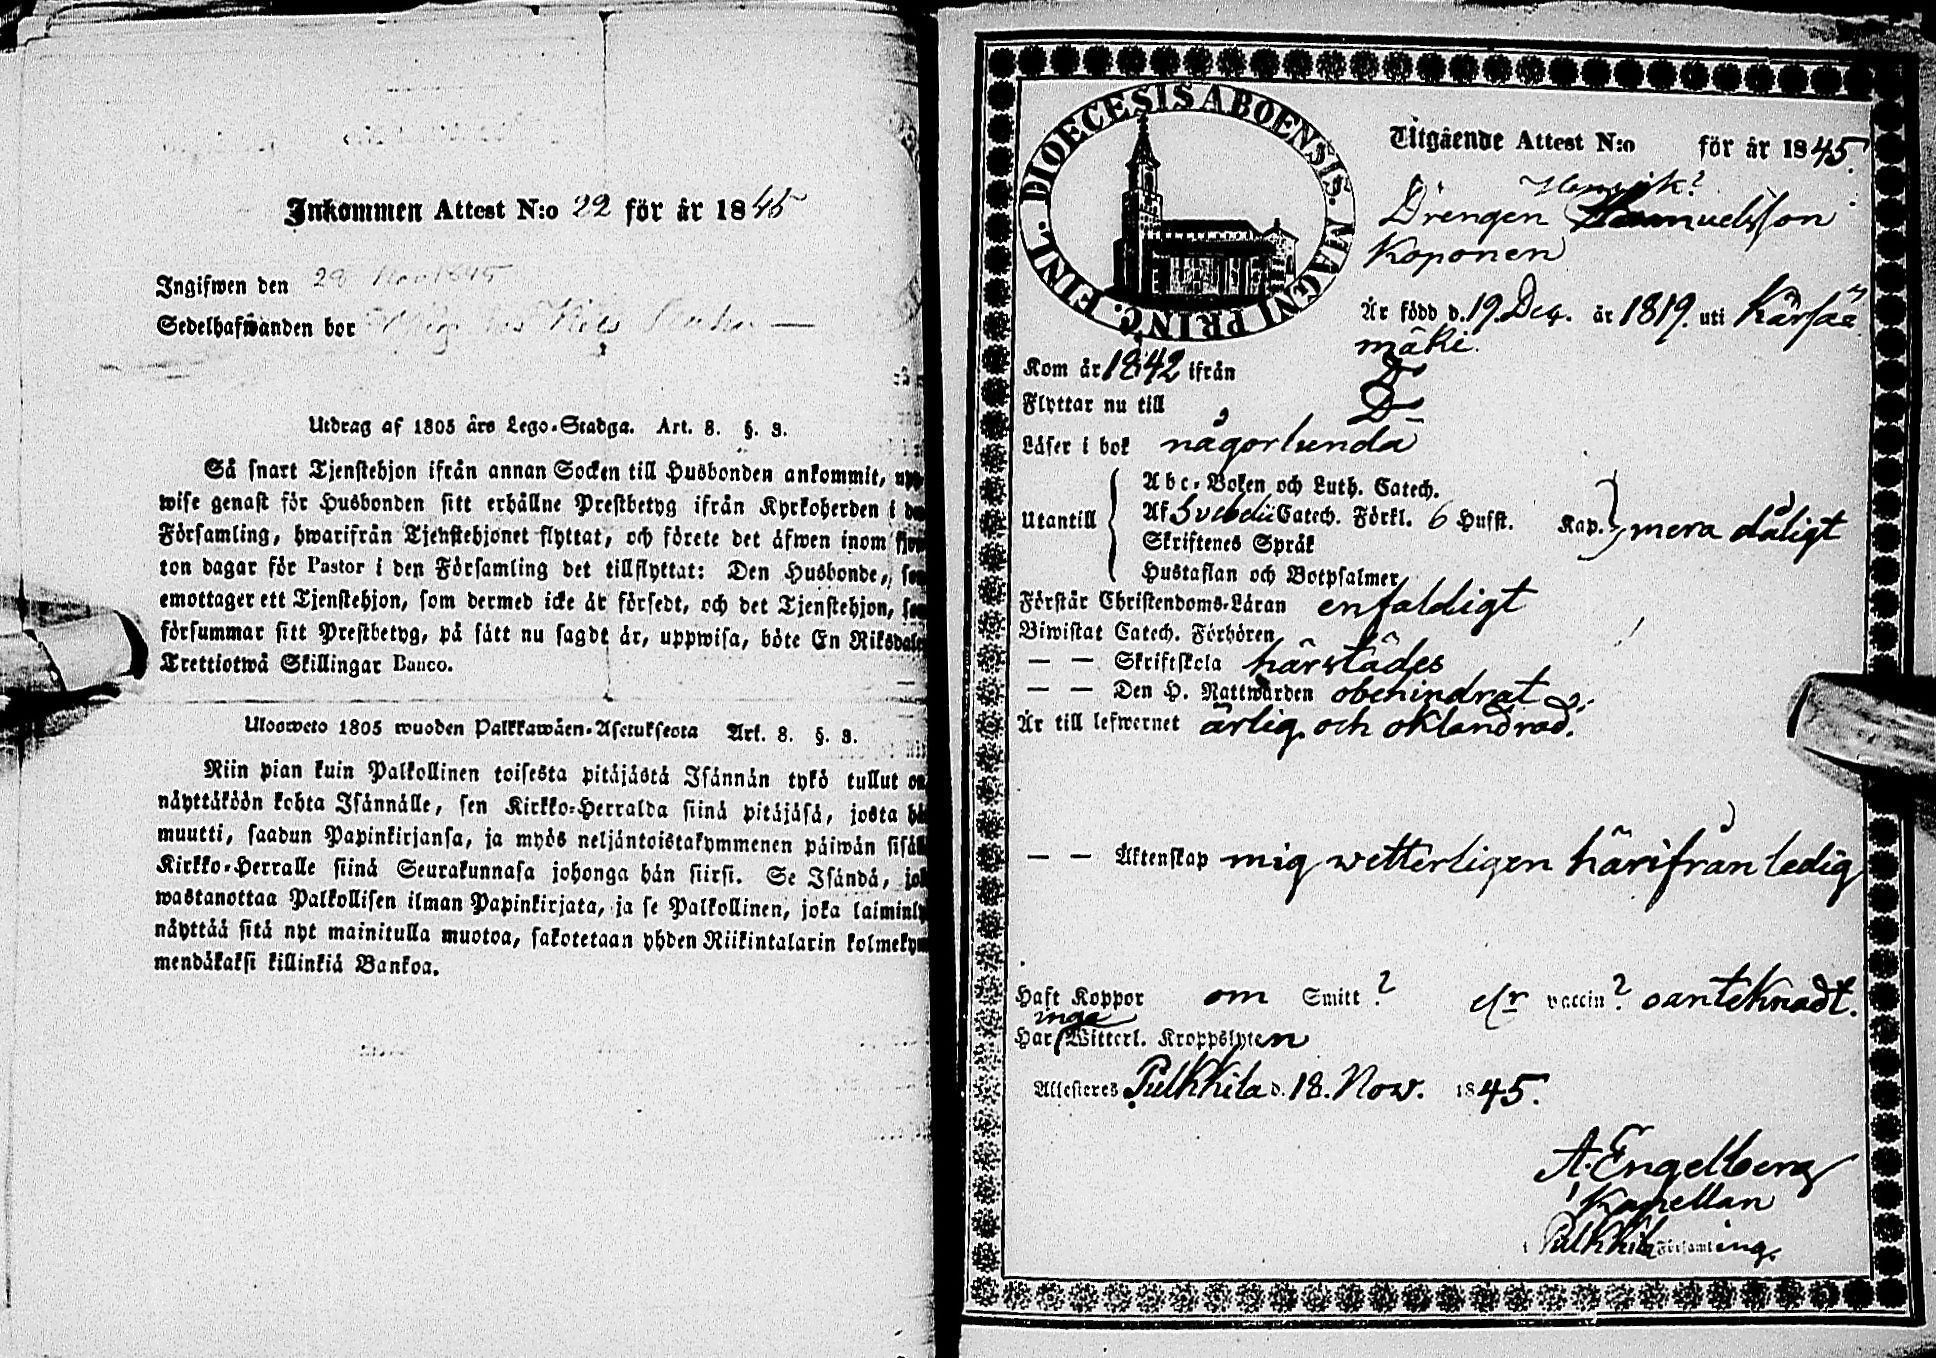 Inkommen Attest N:o 22 för år 1845
Ingifwen den 28 Nov 1845
Sedelhafwanden bor
Utdrag af 1805 års Lego-Stadga. Art. 8. §. 3.
Så snart Tjenstehjon ifrån annan Socken till Husbonden ankommit, upp-
wise genast för Husbonden sitt erhållne Prestbetyg ifrån Kyrkoherden i den
Församling, hwarifrån Tjenstehjonet flyttat, och förete det äfwen inom fjor
ton dagar för Pastor i den Församling det tillflyttat: Den Husbonde, som
emottager ett Tjenstehjon, som dermed icke är försedt, och det Tjenstehjon, som
försummar sitt Prestbetyg, på sätt nu sagdt är, uppwisa, böte En Riksdaler
Trettiotwå Skillingar Banco.
Ulosweto 1805 wuoden Palkkawäen-Asetuksesta Art. 8. §. 3.
Niin pian kuin Palkollinen toisesta pitäjästä Isännän tykö tullut on
näyttäköön kohta Isännälle, sen Kirkko-Herralda siinä pitäjäsä, josta hän
muutti, saadun Papinkirjansa, ja myös neljäntoistakymmenen päiwän sisäl
Kirkko-Herralle siinä Seurakunnasa johonga hän siirsi. Se Isändä, jok
wastanottaa Palkollisen ilman Papinkirjata, ja se Palkollinen, joka laiminly
näyttää sitä nyt mainitulla muotoa, sakotetaan yhden Riikintalarin kolmekym
mendäkaksi killinkiä Bankoa.
DIOECESIS ABOENSIS. MAGNI PRINC. FINL.
Utgående Attest N:o för år 1845.
Henrik?
Drengen Samuelsson
Koponen
Är född d. 19. Dec. år 1819. uti Kärsä
mäki.
Kom år 1842 ifrån D:o
Flyttar nu till D:o
Läser i bok någorlunda
Utantill
Abc-Boken och Luth. Catech.
Af Svebelii Catech. Förkl. 6 Hufst. Kap. mera dåligt
Skriftenes Språk
Hustaflan och Botpsalmer
Förstår Christendoms-Läran enfaldigt
Biwistat Catech. Förhören
— — Skriftskola härstädes
— — Den H. Nattwarden obehindrat
Är till lefwernet ärlig och oklandrad.
— — Äktenskap mig wetterligen härifrån ledig
Haft Koppor om Smitt? elr vaccin? oanteknadt.
inga
Har Witterl. Kroppslyten
Attesteres Pulkkila d. 18. Nov. 1845.
A. Engelberg
Kapellan
i Pulkkila Församling.